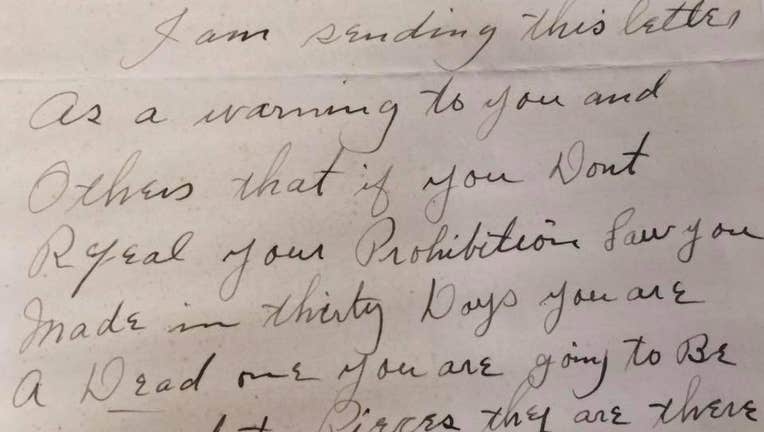 I am sending this letter
As a warning to you and
Others that if you Dont
Repeal your Prohibition Law you
Made in thirty Days you are
A Dead one you are going to Be
to Pieces they are there